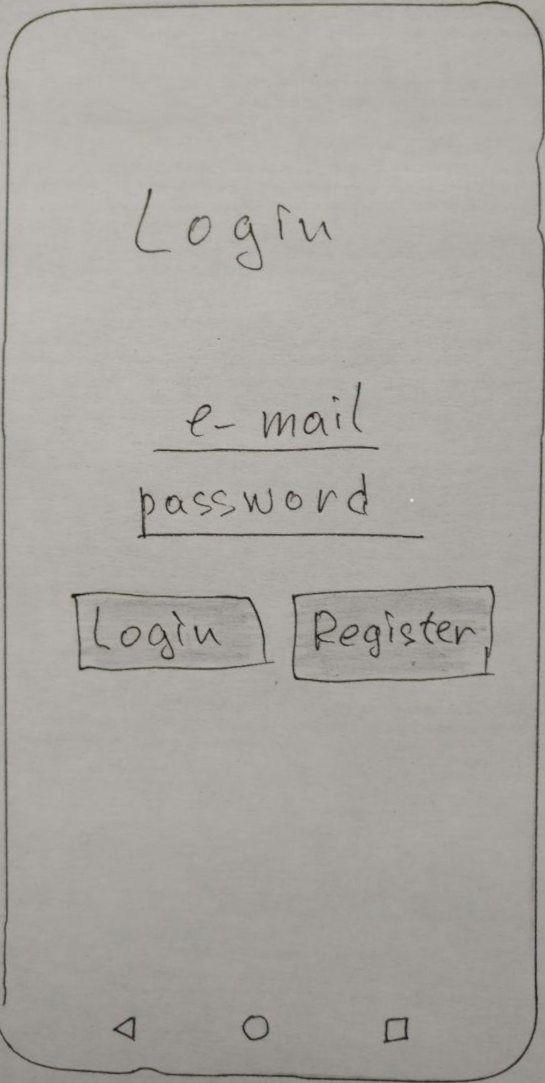 Login
e-mail
password
Login Register